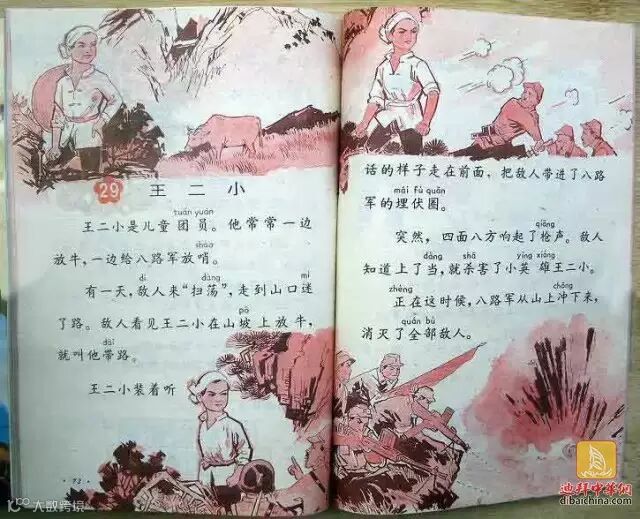 29 王二小
tuán yuán
王二小是儿童团员。他常常一边
shào
放牛,一边给八路军放哨。
dí dàng mí
有一天,敌人来“扫荡”,走到山口迷
pō
了路。敌人看见王二小在山坡上放牛,
dài
就叫他带路。
王二小装着听
73
话的样子走在前面,把敌人带进了八路
mái fú quān
军的埋伏圈。
qiāng
突然,四面八方响起了枪声。敌人
dàng shā yīng xióng
知道上了当,就杀害了小英雄王二小。
zhèng chōng
正在这时候,八路军从山上冲下来,
quán bù
消灭了全部敌人。
大数跨境
迪拜中华网
dibaichina.com